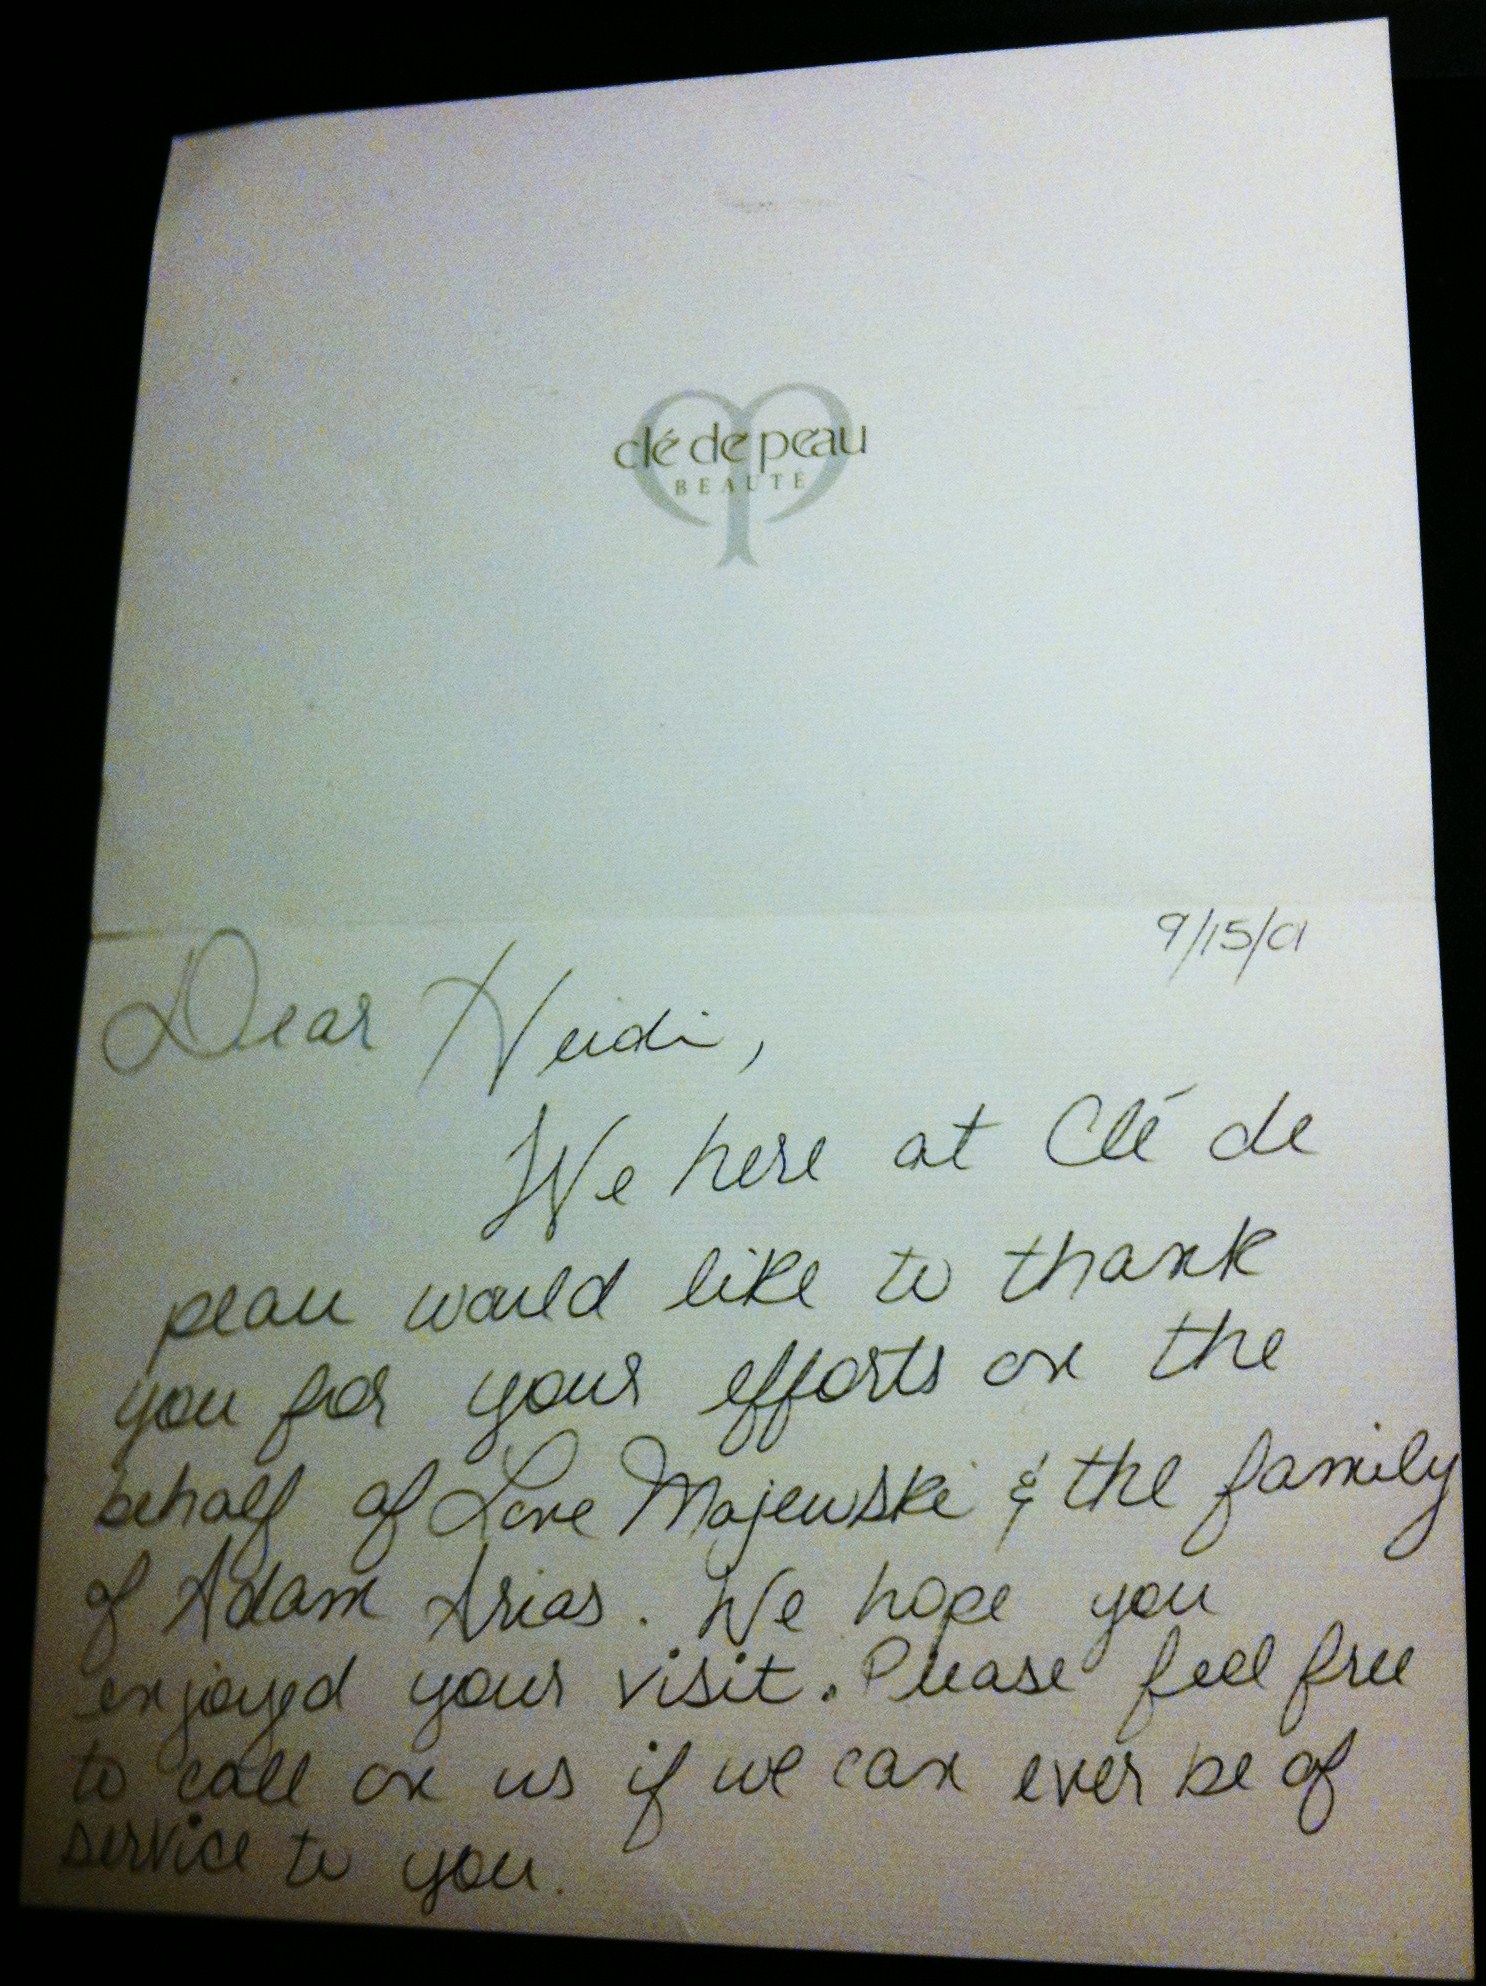 clé de peau
BEAUTÉ
9/15/01
Dear Heidi,
We here at Clé de
peau would like to thank
you for your efforts on the
behalf of Lore Majewski & the family
of Adam Arias. We hope you
enjoyed your visit. Please feel free
to call on us if we can ever be of
service to you.